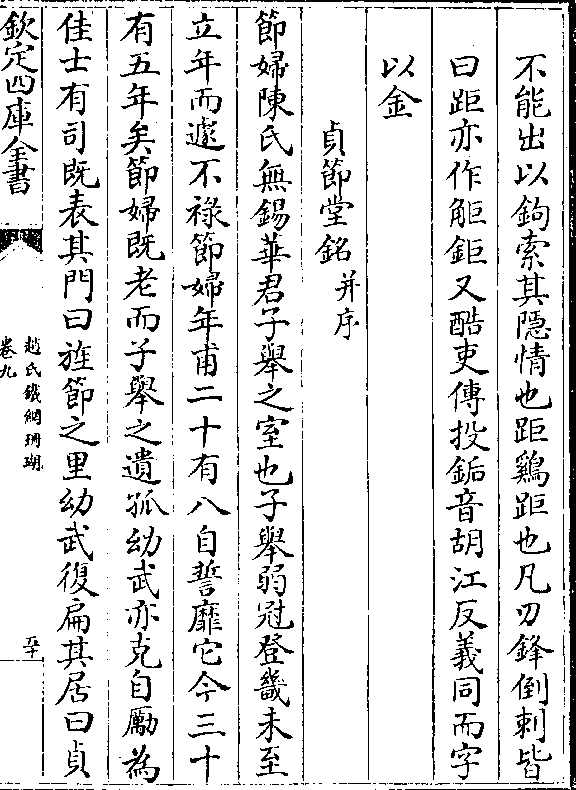 不能出以鉤索其隱情也距鷄距也凡刃鋒倒刺皆
曰距亦作觝鉅又酷吏傳投缿音胡江反義同而字
以金
貞節堂銘并序
節婦陳氏無錫華君子舉之室也子舉弱冠登畿未至
立年而遽不祿節婦年甫二十有八自誓靡它今三十
有五年矣節婦既老而子舉之遺孤幼武亦克自勵為
佳士有司既表其門曰旌節之里幼武復扁其居曰貞
欽定四庫全書
趙氏鐵網珊瑚
卷九